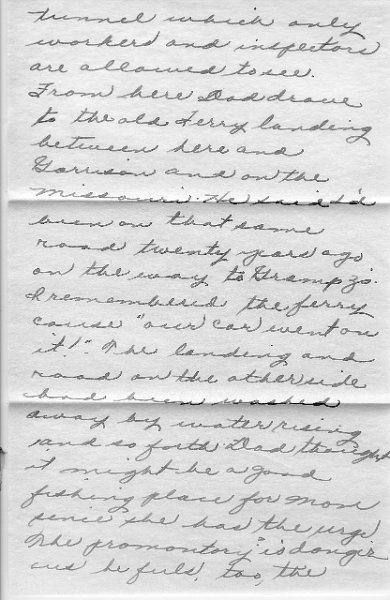 tunnel which only
workers and inspectors
are allowed to see.
From here Dad drove
to the old Ferry landing
between here and
Garrison and on the
Missouri. He said I'd
been on that same
road twenty years ago
on the way to Gramp Z's.
I remembered the ferry
cause "our car went on
it!" The landing and
road on the other side
had been washed
away by water rising
and so forth Dad thought
it might be a good
fishing place for Mom
senie she has the urge
The promontory is danger
ous he feels, too, the